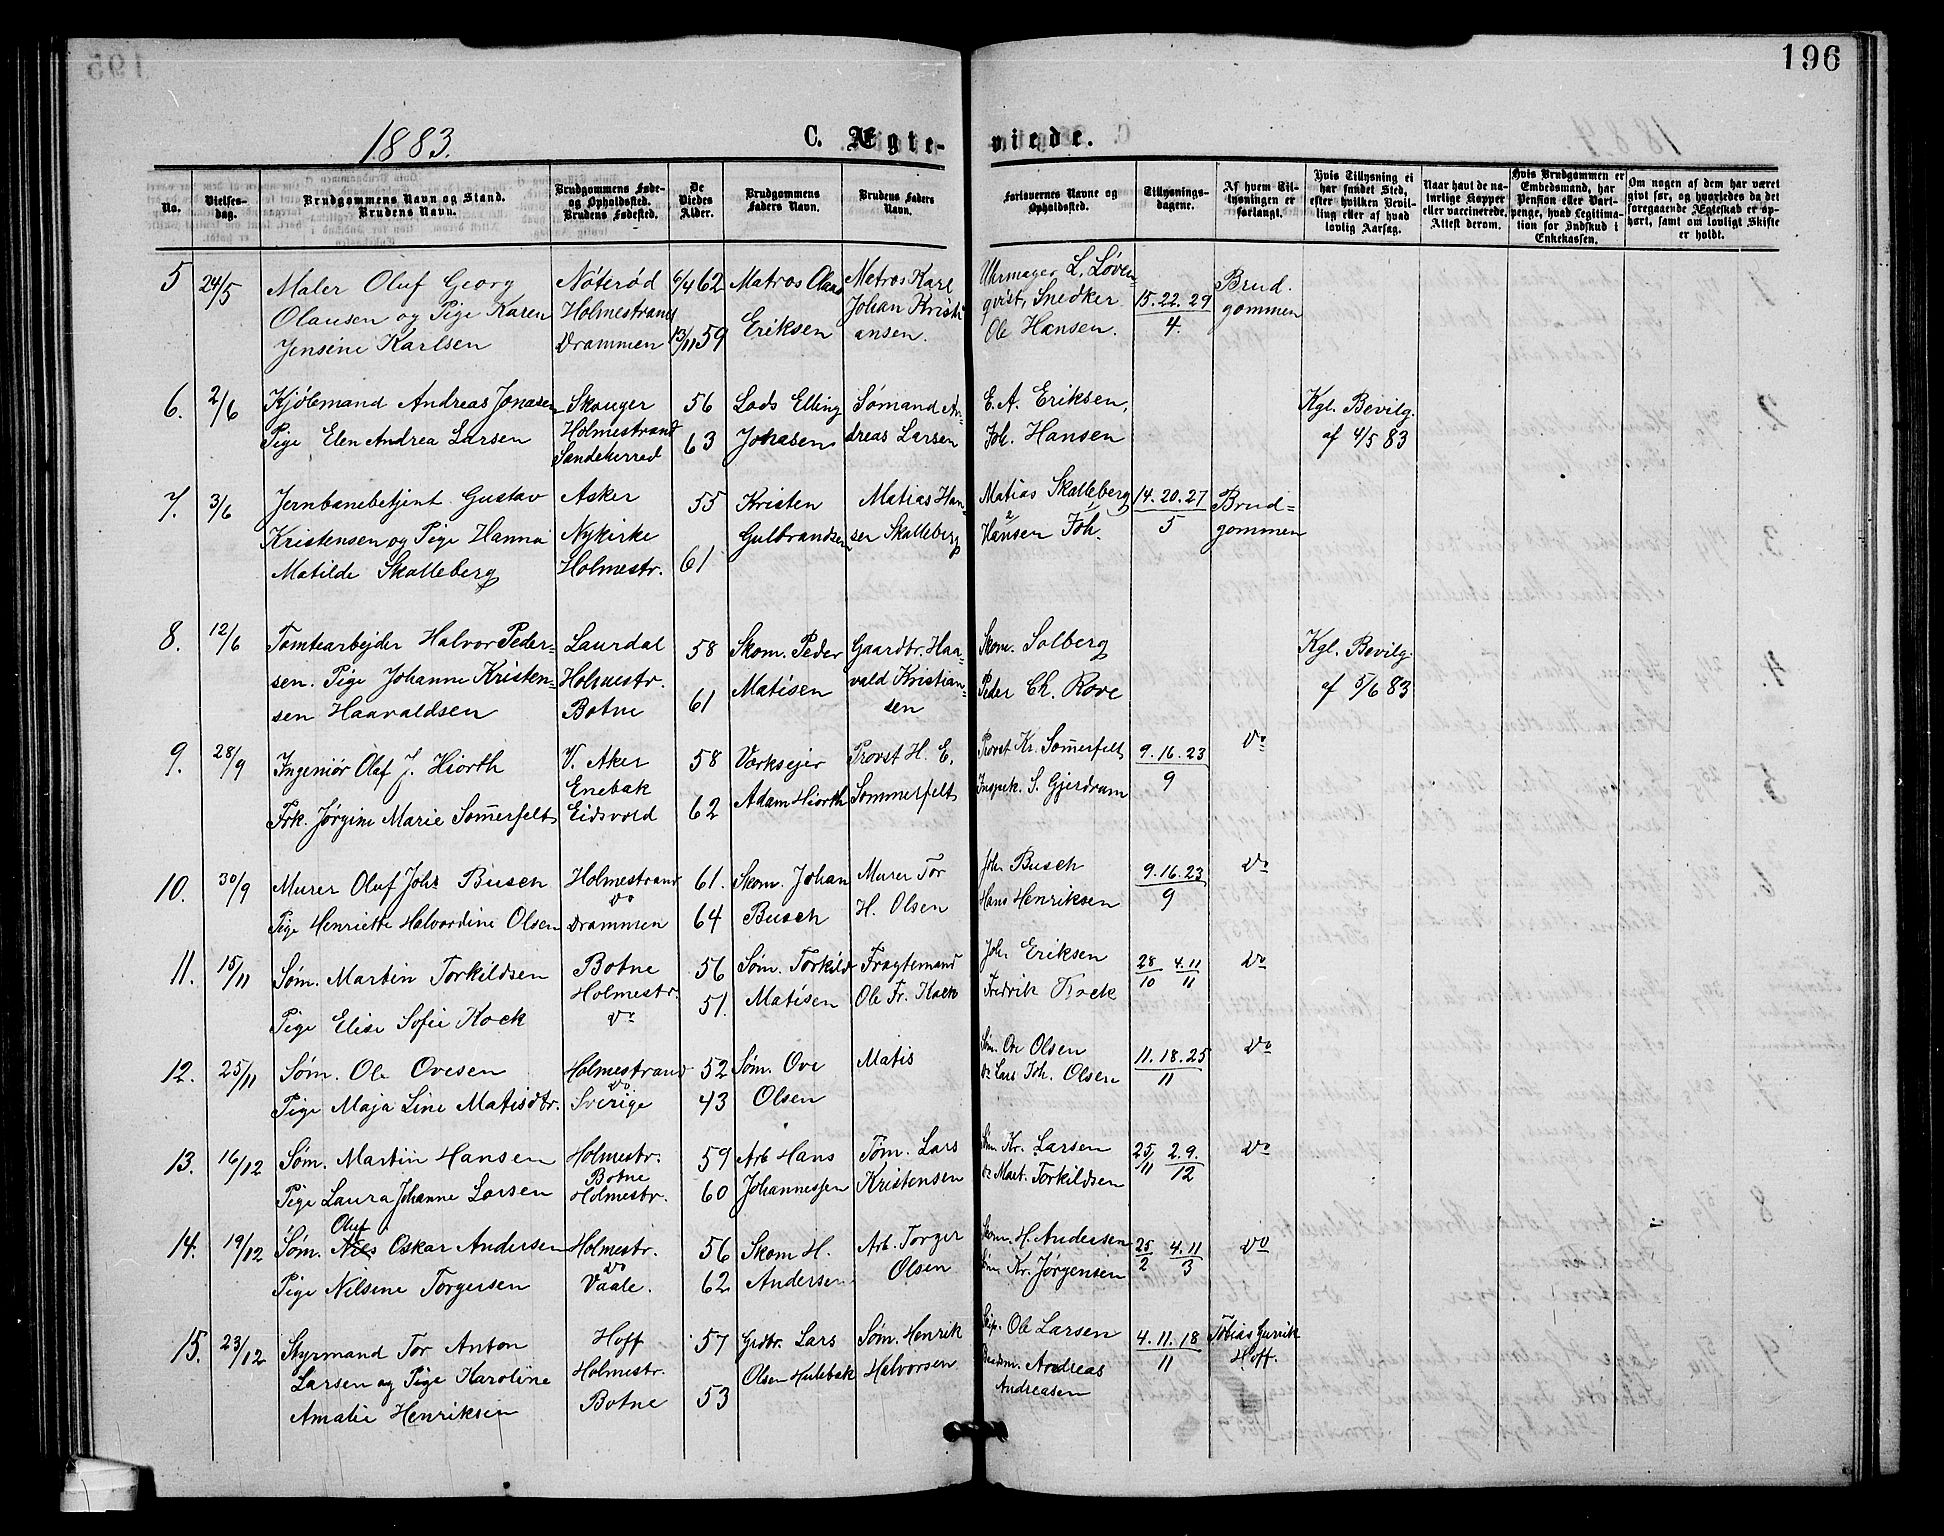 196
1883.
C. Ægte-viede.
No. | Vielses-dag. | Brudgommens Navn og Stand. Brudens Navn. | Brudgommens Føde- og Opholdsted. Brudens Fødested. | De Viedes Alder. | Brudgommens Faders Navn. | Brudens Faders Navn. | Forlovernes Navne og Opholdsted. | Tillysnings-dagene. | Af hvem Til-lysningen er forlangt. | Hvis Tillysning ei har fundet Sted, efter hvilken Bevil-ling eller af hvad lovlig Aarsag. | Naar havt de na-turlige Kopper eller vaccinerede, Attest derom. | Hvis Brudgommen er Embedsmand, har Pension eller Vart-penge, hvad Legitima-tion for Indskud i Enkekassen. | Om nogen af dem har været givt før, og hvorledes da det foregaaende Ægteskab er op-hørt, samt om lovligt Skifte er holdt.
5 | 24/5 | Maler Oluf Georg | Nøterød | 6/4 62 | Matros Olaus | Matros Karl | Uhrmager L. Løven- | 15. 22. 29 | Brud-
Olausen og Pige Karen | Holmestrand | Eriksen | Johan Kristi- | qvist, Snedker | 4. | gommen
Jensine Karlsen | Drammen | 13/11 59 | ansen. | Ole Hansen.
6. | 2/6 | Kjøbmand Andreas Jonasen | Skouger | 56 | Lods Elling | Sømand An- | E. A. Eriksen, | Kgl. Bevilg.
Pige Elen Andrea Larsen | Holmestrand | 63 | Johasen | dreas Larsen | Joh. Hansen | af 4/5 83
Sandeherred
7. | 3/6 | Jernbanebetjent Gustav | Asker | 55 | Kristen | Matias Han- | Matias Skalleberg | 14. 20. 27 | Brud=
Kristensen og Pige Hanna | Nykirke | Gulbrandsen | sen Skalleberg | Hansen Joh. | 5 | gommen
Matilde Skalleberg | Holmestr. | 61
8. | 12/6 | Tomtearbejder Halvor Peder- | Laurdal | 58 | Skom. Peder | Gaardbr. Haa- | Skom. Solberg | Kgl. Bevilg.
sen. Pige Johanne Kristen- | Holmestr. | Matisen | vald Kristian- | Peder Ch. Rove | af 5/6 83
sen Haavaldsen | Botne | 61 | sen
9. | 28/9 | Ingeniør Olaf J. Hiorth | V. Aker | 58 | Værksejer | Provst H. E. | Provst Kr. Somerfelt | 9. 16. 23 | do
Enebak | Adam Hiorth | Sommerfelt | Inspek. S. Gjerdrum | 9
Frk. Jørgine Marie Somerfelt | Eidsvold | 62
10. | 30/9 | Murer Oluf Johs Busch | Holmestrand | 61. | Skom. Johan | Murer Tor | Joh. Busch | 9. 16. 23 | do
do
Pige Henriette Halvordine Olsen | Drammen | 64 | Busch | H. Olsen | Hans Henriksen | 9
11. | 15/11 | Søm. Martin Torkildsen | Botne | 56 | Søm. Torkild | Fragtemand | Joh. Eriksen | 28/10 4.11/11 | do
Holmestr. | 51. | Matisen | Ole Fr. Kock | Fredrik Kock
Pige Elise Sofie Kock | do
12. | 25/11 | Søm. Ole Ovesen | Holmestrand | 52 | Søm. Ove | Matis | Søm. Ove Olsen | 11. 18. 25 | do
do
Pige Maja Line Matisdtr. | Sverige | 43 | Olsen | do Lars Joh. Olsen | 11
13. | 16/12 | Søm. Martin Hansen | Holmestr. | 59 | Arb Hans | Tøm. Lars | Søm Kr. Larsen | 25/11 2.9./12 | do
Botne
Pige Laura Johanne Larsen | Holmestr. | 60 | Johannessen | Kristensen | do Mart. Torkildsen
Oluf
14. | 19/12 | Søm. Nils Oskar Andersen | Holmestr. | 56 | Skom H. | Arb. Torger | Skom. H. Andersen | 25/2 4.11/3 | do
do
Pige Nilsine Torgersen | Vaale. | 62 | Andersen | Olsen | Søm Kr. Jørgensen
15. | 23/12 | Styrmand Tor Anton | Hoff | 57 | Grdbr. Lars | Søm. Henrik | Skip. Ole Larsen | 4. 11. 18 | Tobias Gurvik
Larsen og Pige Karoline | Holmestr. | Olsen Hulebak | Halvorsen | Andreas | 11 | Hoff.
Amalie Henriksen | Botne | 53 | Andreasen